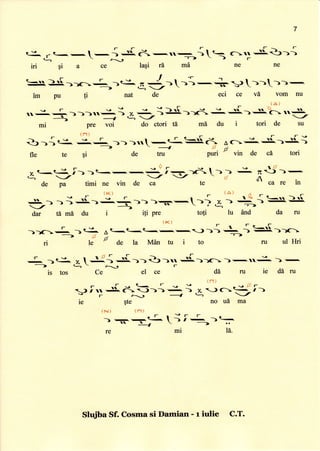 7
iri și a ce lași ră mă ne ne
îm pu ți nat de eci ce vă vom nu
(Δ)
mi pre voi do ctori tă mă du i tori de su
(Π)
fle te și de tru puri vin de că tori
de pa timi ne vin de ca te ca re în
(K) (Δ)
dar tă mă du i iți pre toți lu ând da ru
(K)
ri le de la Mân tu i to ru ul Hri
is tos Ce el ce dă ru ie dă ru
(Π)
ie ște no uă ma
(N) (Π)
re mi lă.
Slujba Sf. Cosma si Damian - 1 iulie C.T.